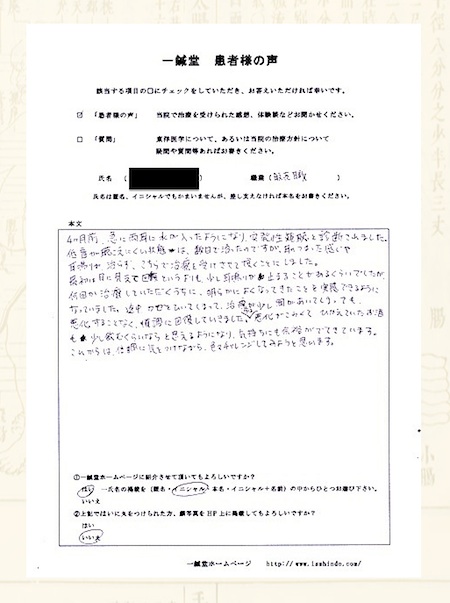 一鍼堂 患者様の声
該当する項目の□にチェックをしていただき、お答えいただければ幸いです。
☑ 「患者様の声」 当院で治療を受けられた感想、体験談などお聞かせください。
□ 「質問」 東洋医学について、あるいは当院の治療方針について
疑問や質問等あればお書きください。
氏名 ( 職業 ( 教員職 )
氏名は匿名、イニシャルでもかまいませんが、差し支えなければ本名をお書きください。
本文
4ヶ月前、急に両耳に水が入ったようになり、突発性難聴と診断されました。
低音が聴こえにくい状態は、数日で治ったのですが、耳のつまった感じや
耳鳴は治らず、こちらで治療を受けさせて頂くことにしました。
最初は目に見えて回復というよりも、少し耳鳴りが止まることがあるくらいでしたが、
何回か治療していただくうちに、明らかによくなってきたことを実感できるように
なっていました。途中カゼをひいてしまって、治療が少し間があいてしまっても、
悪化することなく、順調に回復していきました。悪化がこわくてひかえていたお酒
も少し飲むくらいならと思えるようになり、気持ちにも余裕がでてきています。
これからは、体調に気をつけながら、色々チャレンジしてみようと思います。
①一鍼堂ホームページに紹介させて頂いてもよろしいですか?
はい →氏名の掲載を (匿名・イニシャル・本名・イニシャル+名前) の中からひとつお選び下さい。
いいえ
②上記ではいに丸をつけられた方、顔写真をHP上に掲載してもよろしいですか?
はい
いいえ
一鍼堂ホームページ http://www.isshindo.com/